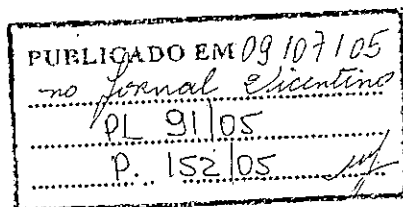 PUBLICADO EM 09/07/05
no Jornal Vicentino
PL 91/05
P. 152/05